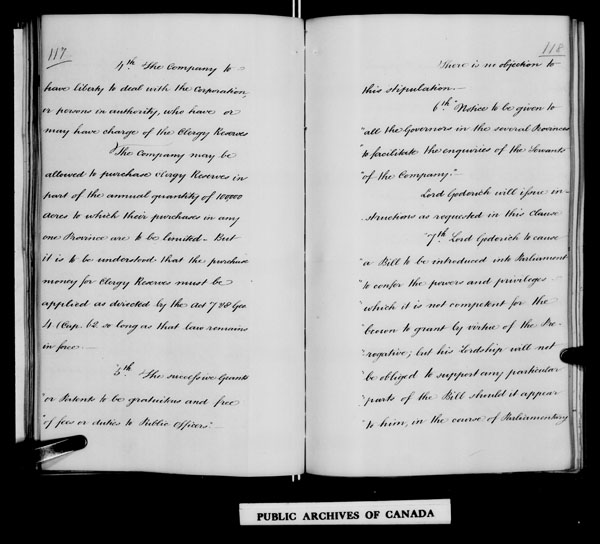 117
4th The Company to
have liberty to deal with the Corporation,
or persons in authority, who have or
may have charge of the Clergy Reserves
The Company may be
allowed to purchase Clergy Reserves in
part of the annual quantity of 100,000
acres to which their purchases in any
one Province are to be limited - But
it is to be understood that the purchase
money for Clergy Reserves must be
applied as directed by the Act 7 & 8 Geo
4 Cap. 62. so long as that law remains
in force
"5th The successive Grants
"or Patents to be gratuitous and free
"of fees or duties to Public Officers."
118
There is no objection to
this stipulation.
6th "Notice to be given to
"all the Governors in the several Provinces
"to facilitate the enquiries of the Servants
"of the Company."
Lord Goderich will issue in-
structions as requested in this clause
"7th Lord Goderich to cause
"a Bill to be introduced into Parliament
"to confer the powers and privileges
"which it is not competent for the
"Crown to grant by virtue of the Pre-
"rogative; but his Lordship will not
"be obliged to support any particular
"parts of the Bill should it appear
"to him, in the course of Parliamentary
PUBLIC ARCHIVES OF CANADA